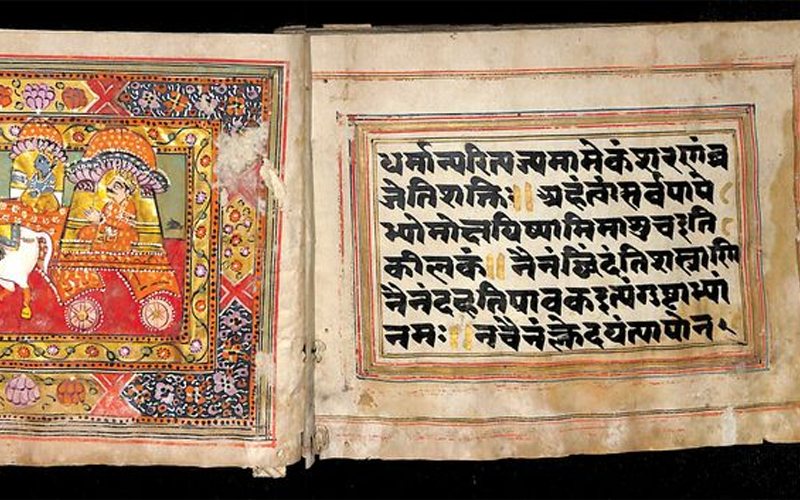 धर्मान्परित्यज्यमामेकंशरणंव्र
जेतिशक्तिः॥अहंत्वांसर्वपापे
भ्योमोक्षयिष्यामिमाशुचइति
कीलकं॥नैनंछिंदंतिशस्त्राणि
नैनंदहतिपावकइत्यंगुष्ठाभ्यां
नमः॥नचैनंक्लेदयंत्यापोन